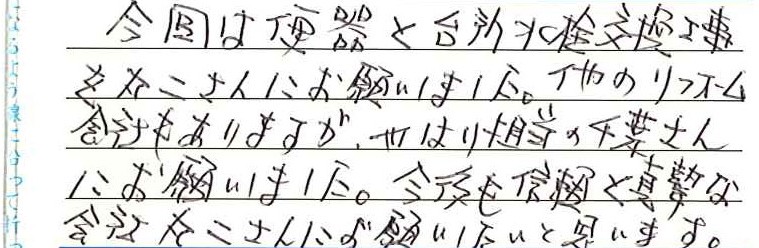 今回は便器と台所水栓交換工事
をたこさんにお願いしました。他のリフォーム
会社もありますが、やはり担当の千葉さん
にお願いしました。今後も信頼と真摯な
会社たこさんにお願いしたいと思います。